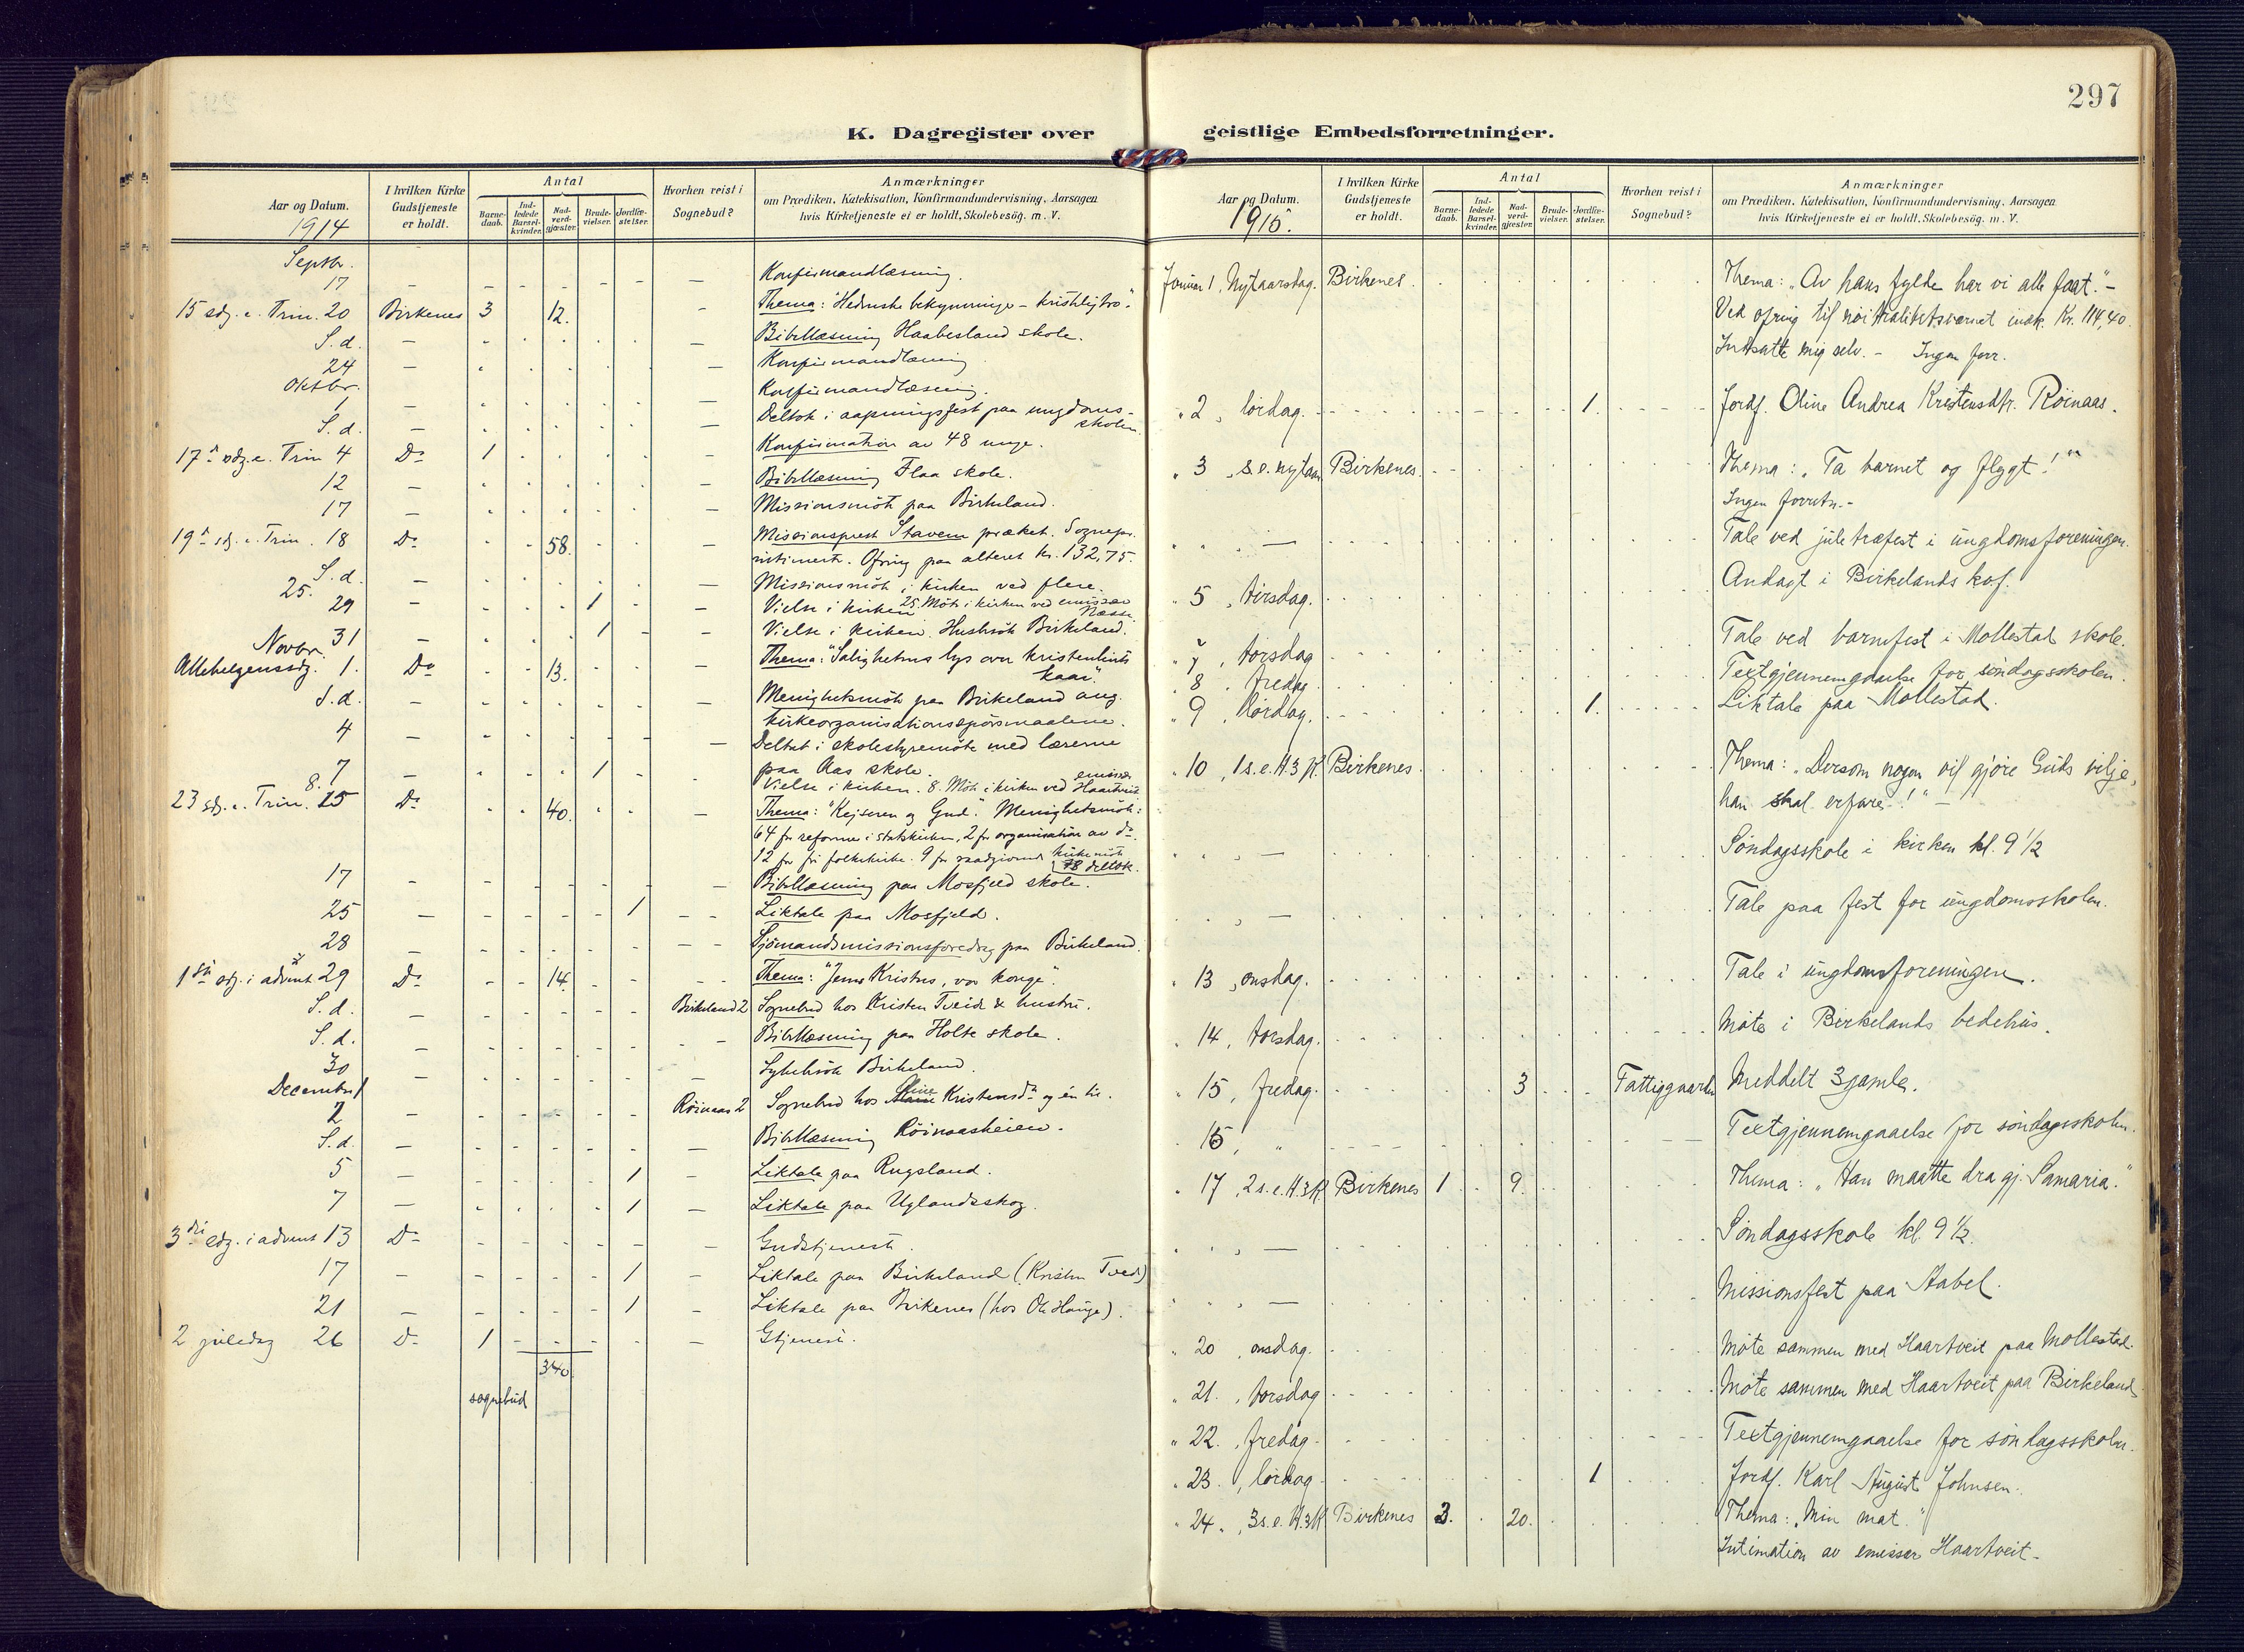 297
K. Dagregister over geistlige Embedsforretninger.
Aar og Datum. 1914
I hvilken Kirke Gudstjeneste er holdt.
Antal
Barne-daab.
Ind-ledede Barsel-kvinder.
Nad-verd-gjæster.
Brude-vielser.
Jordfæ-stelser.
Hvorhen reist i Sognebud?
Anmærkninger
om Prædiken, Katekisation, Konfirmandundervisning, Aarsagen
hvis Kirketjeneste ei er holdt, Skolebesög. m. V.
Septbr. 17 — Konfirmandlæsning.
15 sdg. e. Trin. 20 Birkenes 3 12. Thema: "Hedenske bekymringer – kristelig tro."
S. d. — Bibellæsning Haabesland skole.
24 — Konfirmandlæsning
Oktbr. 1 — Konfirmandlæsning.
S. d. — Deltok i aapningsfest paa ungdoms-
skolen
17de sdg. e. Trin 4 Do 1 Konfirmation av 48 unge.
12 Bibellæsning Flaa skole.
17 Missionsmöte paa Birkeland.
19de sdg. e. Trin. 18 Do 58. Missionsprest Stavem præket. Sognepr.
intimerte. Ofring paa alteret kr. 132,75.
S. d. — Missionsmöte i kirken ved flere.
25. 29 — 1 Vielse i kirken 25. Möte i kirken ved emissær
Næsse
31 — 1 Vielse i kirken. Husbesök Birkeland.
Novbr.
Allehelgenssdg. 1. Do 13. Thema: "Salighetens lys over kristenlivets
kaar".
S. d. Menighetsmöte paa Birkeland ang.
kirkeorganisationsspörsmaalene.
4 — Deltat i skolestyremöte med lærerne
paa Aas skole.
7 — 1 Vielse i kirken. 8. Möte i kirken ved emissær Haartveit
8.
23 sdg. e. Trin. 15 Do 40. Thema: "Kejseren og Gud." Menighetsmöte:
64 for reformer i statskirken, 2 for organisation av do.
12 for fri folkekirke. 9 for raadgivende kirkemöte
78 deltok.
17 Bibellæsning paa Mosfjeld skole.
25 — 1 Liktale paa Mosfjeld.
28 Sjömandsmissionsforedrag paa Birkeland.
1ste sdg. i advent 29 Do 14. Thema: "Jesus Kristus, vor konge".
S. d. — Birkeland 2 Sognebud hos Kristen Tveide & hustru.
S. d. — Bibellæsning paa Holte skole.
30 — Sykebesök Birkeland.
Decembr 1 Röinaas 2 Sognebud hos Oline Kristensdtr og én til.
2
S. d. — Bibellæsning Röinaasheien.
5 — 1 Liktale paa Rugsland.
7 — 1 Liktale paa Uglandsskog.
3die sdg. i advent 13 Do Gudstjeneste.
17 — 1 Liktale paa Birkeland (Kristen Tveid)
21 — 1 Liktale paa Birkenes (hos Ole Hauge).
2 juledag 26 Do 1 Gtjenest.
340.
sognebud
Aar og Datum. 1915.
I hvilken Kirke Gudstjeneste er holdt.
Antal
Barne-daab.
Ind-ledede Barsel-kvinder.
Nad-verd-gjæster.
Brude-vielser.
Jordfæ-stelser.
Hvorhen reist i Sognebud?
Anmærkninger
om Prædiken, Katekisation, Konfirmandundervisning, Aarsagen
hvis Kirketjeneste ei er holdt. Skolebesög. m. V.
Januar 1, Nytaarsdag. Birkenes. Thema: „Av hans fylde har vi alle faat." –
Ved ofring til nöitralitetsvernet indk. Kr. 114,40.
Indsatte mig selv. – Ingen forr.
" 2, lördag. 1. Jordf. Oline Andrea Kristensdtr. Röinaas.
" 3, s. e. nytaar Birkenes. Thema: „Ta barnet og flygt!"
Ingen forretn. –
" " — Tale ved juletræfest i ungdomsforeningen.
Andagt i Birkelands kof.
" 5, tirsdag.
Tale ved barnefest i Mollestad skole.
" 7, torsdag
Textgjennemgaaelse for söndagsskolen.
" 8, fredag
" 9, Lördag. 1. Liktale paa Mollestad.
" 10, 1 s. e. H. 3 K. Birkenes. Thema: „Dersom nogen vil gjöre Guds vilje,
han skal erfare!" –
" " — Söndagsskole i kirken kl. 9 1/2
" " — Tale paa fest for ungdomsskolen.
" 13, onsdag. Tale i ungdomsforeningen.
" 14, torsdag. Möte i Birkelands bedehus.
" 15, fredag. 3 Fattiggaarden Meddelt 3 gamle.
" 16, " Textgjennemgaaelse for söndagsskolen.
" 17, 2 s. e. H. 3 K. Birkenes 1 9. Thema: „Han maatte dra gj. Samaria."
" " — Söndagsskole kl. 9 1/2.
" " — Missionsfest paa Stabel.
" 20, onsdag. Möte sammen med Haartveit paa Mollestad.
" 21., torsdag Möte sammen med Haartveit paa Birkeland
" 22., fredag. Textgjennemgaaelse for söndagsskolen.
" 23., lördag 1 Jordf. Karl August Johnsen.
" 24., 3 s. e. H. 3 K Birkenes 3. 20. Thema: „Min mat."
Intimation av emissær Haartveit.